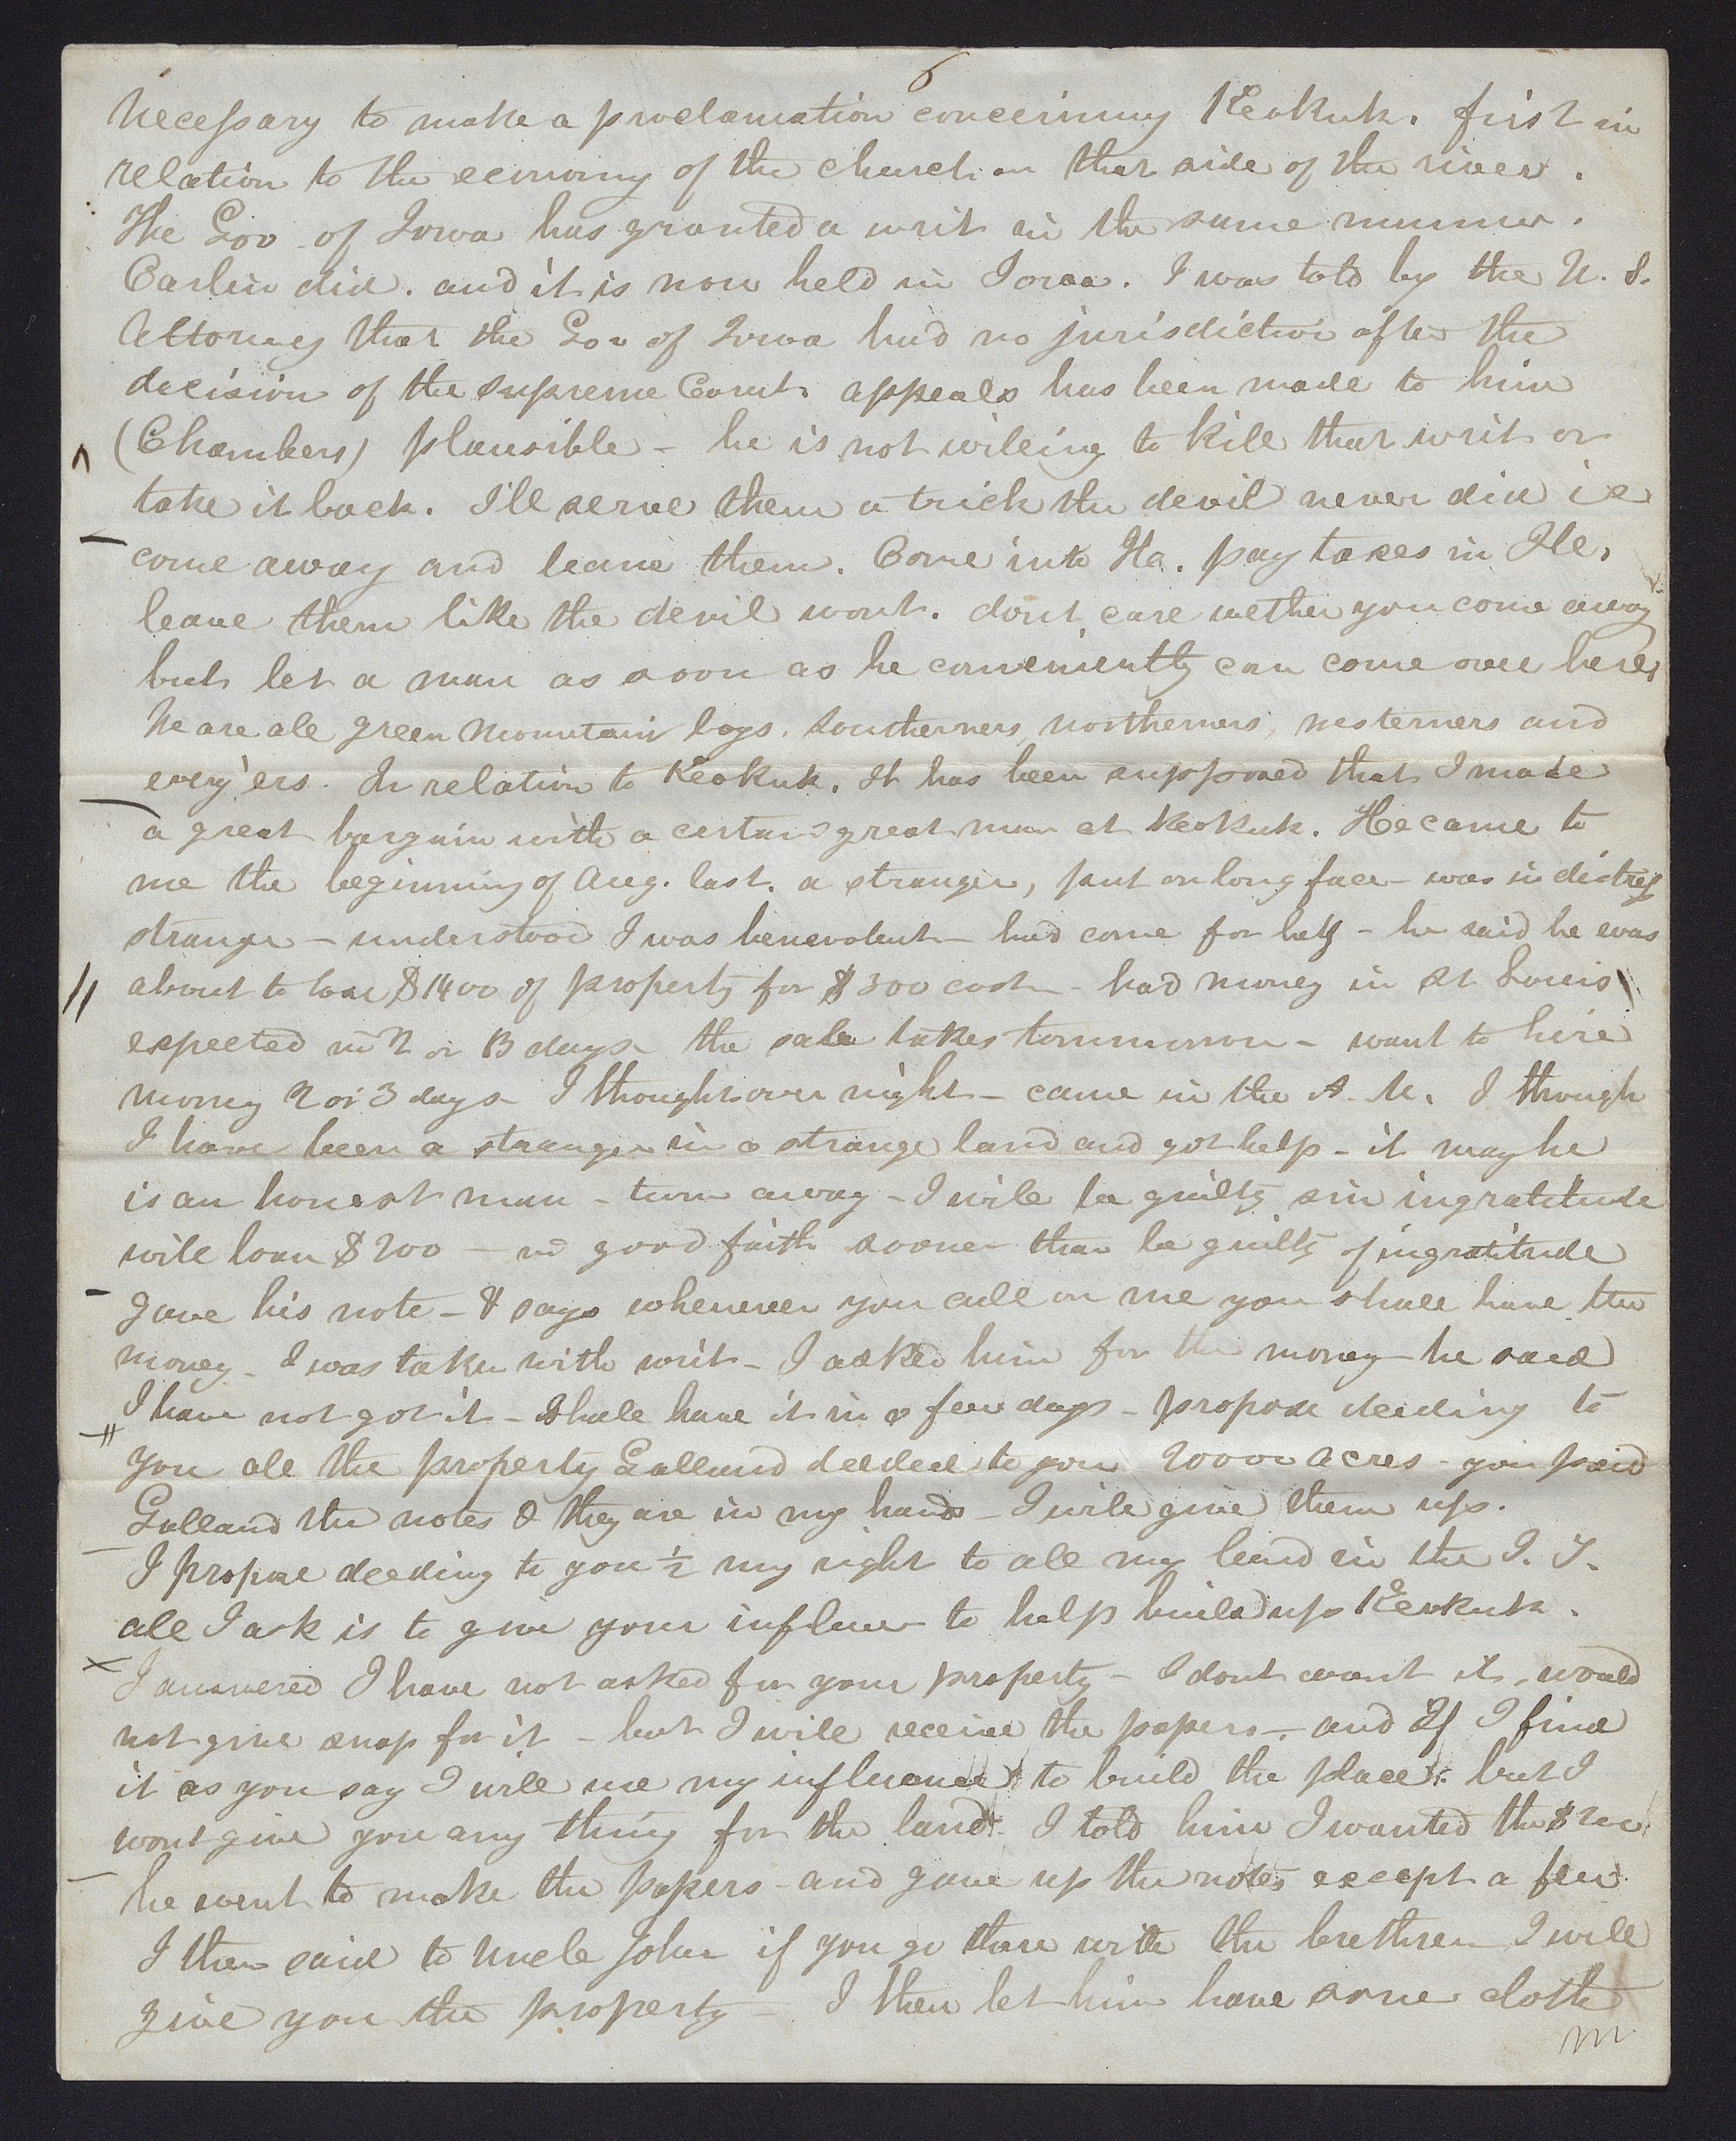 6
necessary to make a proclamation concerning Keokuk. first in
relation to the economy of the church on that side of the river.
The Gov of Iowa has granted a writ in the same manner.
Carlin did. and it is now held in Iowa. I was told by the U. S.
Attorney that the Gov of Iowa had no jurisdiction after the
decision of the Supreme Court. appeals has been made to him
(Chambers) plausible – he is not willing to kill that writ or
take it back. I'll serve them a trick the devil never did i e
come away and leave them. Come into Ils. pay taxes in Ill.
leave them like the devil wont. dont care wether you come away
but let a man as soon as he conveniently can come over here,
We are all green mountain boys. Southerners, northerners, westerners and
every'ers. In relation to Keokuk. It has been supposed that I made
a great bargain with a certain great man at Keokuk. He came to
me the beginning of Aug. last. a stranger, put on long face – was in distress
stranger – understood I was benevolent – had come for help – he said he was
about to lose $1400 of property for $300 cash – had money in St Louis
expected in 2 or 3 days the sale takes tommorrow – want to hire
money 2 or 3 days – I thought over night – came in the A. M. I though
I have been a stranger in a strange land and got help – it may be
is an honest man – turn away – I will be guilty sin ingratitude
will loan $200 – in good faith sooner than be guilty of ingratitude
gave his note – & says whenever you call on me you shall have the
money – I was taken with writ – I asked him for the money – he said
I have not got it – shall have it in a few days – propose deeding to
you all the property Galland deeded to you 20000 acres – you paid
Galland the notes & they are in my hands – I will give them up.
I propose deeding to you ½ my right to all my land in the I. T.
all I ask is to give your influence to help build up Keokuk.
I answered I have not asked for your property – I dont want it, would
not give snap for it – but I will receive the papers – and If I find
it as you say I will use my influence to build the place. but I
wont give you any thing for the land. I told him I wanted the $200
he went to make the papers – and gave up the notes except a few
I then said to Uncle John if you go there with the brethren I will
give you the property – I then let him have some cloth
m